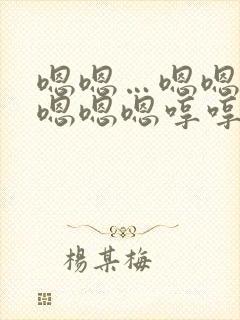 嗯嗯…嗯嗯
嗯嗯嗯哼哼
楊某梅